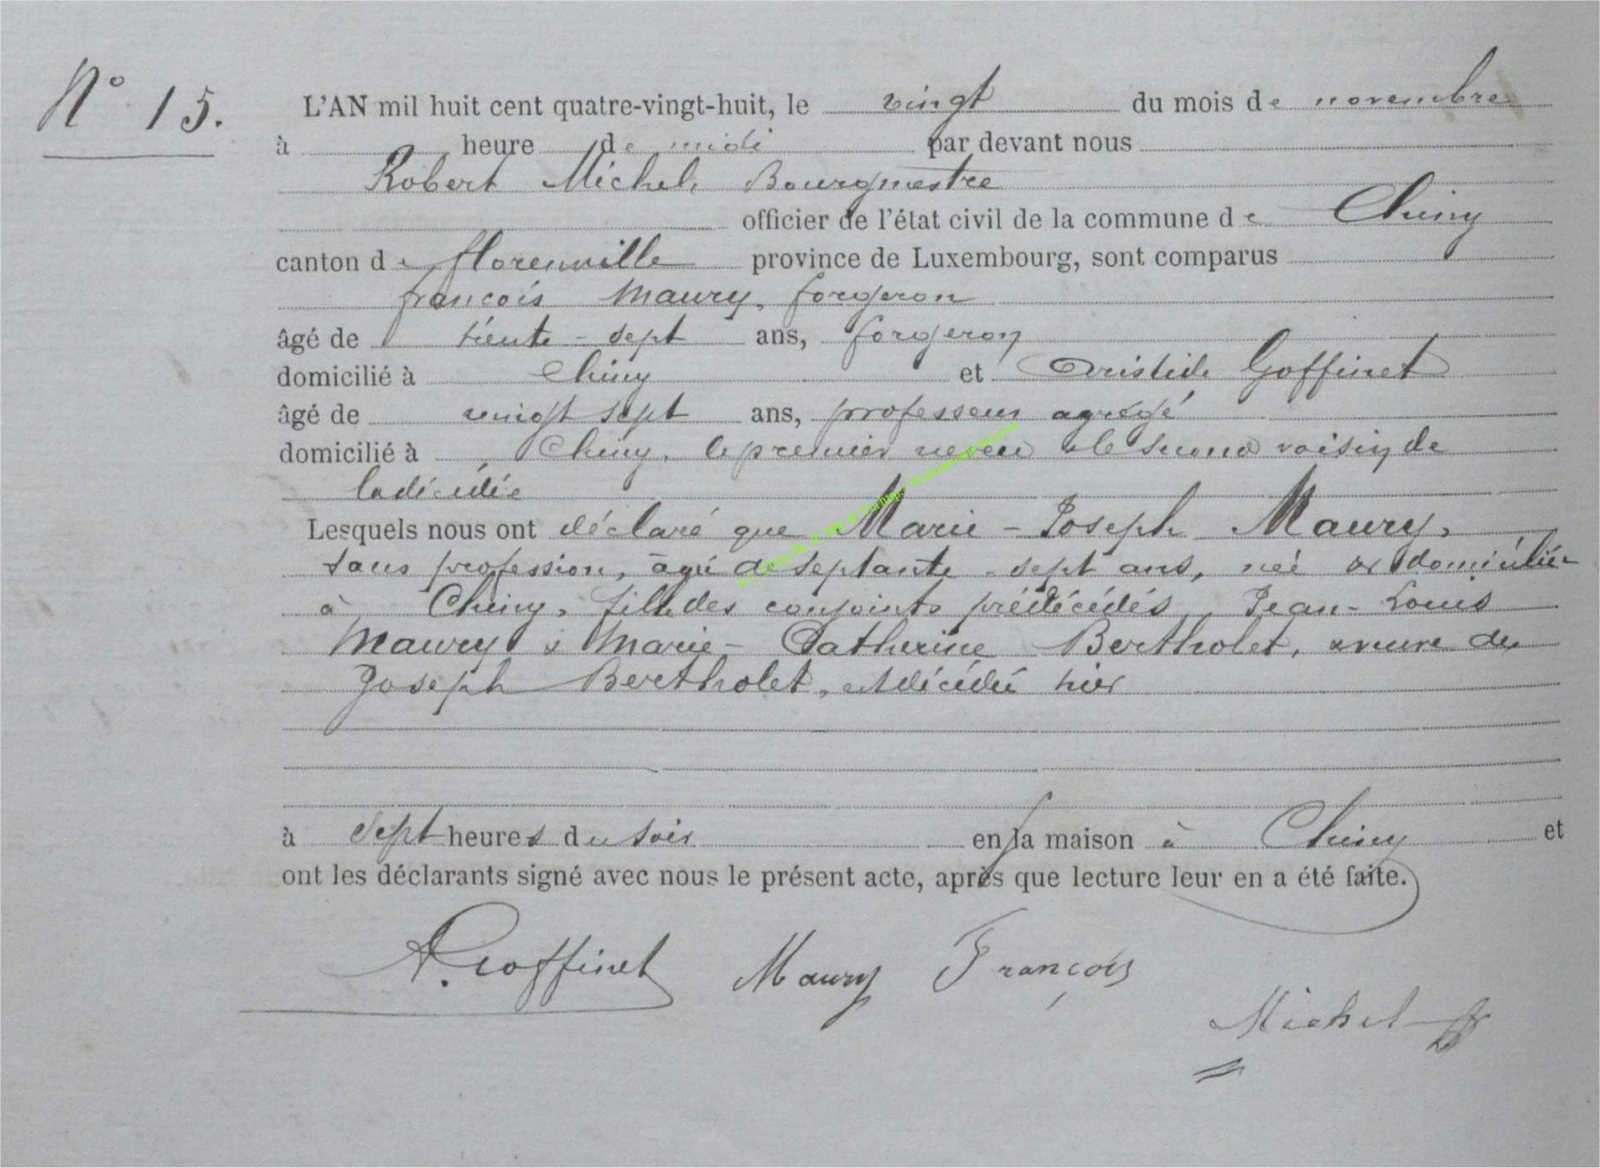 N° 15.
L'AN mil huit cent quatre-vingt-huit, le vingt du mois de novembre
à heure de midi par devant nous
Robert Michel, Bourgmestre
officier de l'état civil de la commune de Chiny
canton de florenville province de Luxembourg, sont comparus
françois Maury, forgeron
âgé de trente-sept ans, forgeron
domicilié à Chiny et Aristide Goffinet
âgé de vingt sept ans, professeur agrégé
domicilié à Chiny, le premier neveu & le second voisin de
la décédée
Lesquels nous ont déclaré que Marie-Joseph Maury,
sans profession, âgé de septante-sept ans, née & domiciliée
à Chiny, fille des conjoints prédécédés Jean-Louis
Maury & Marie-Catherine Bertholet, veuve de
Joseph Bertholet, est décédée hier
à sept heures du soir en sa maison à Chiny et
ont les déclarants signé avec nous le présent acte, après que lecture leur en a été faite.
A. Goffinet Maury François
Michel